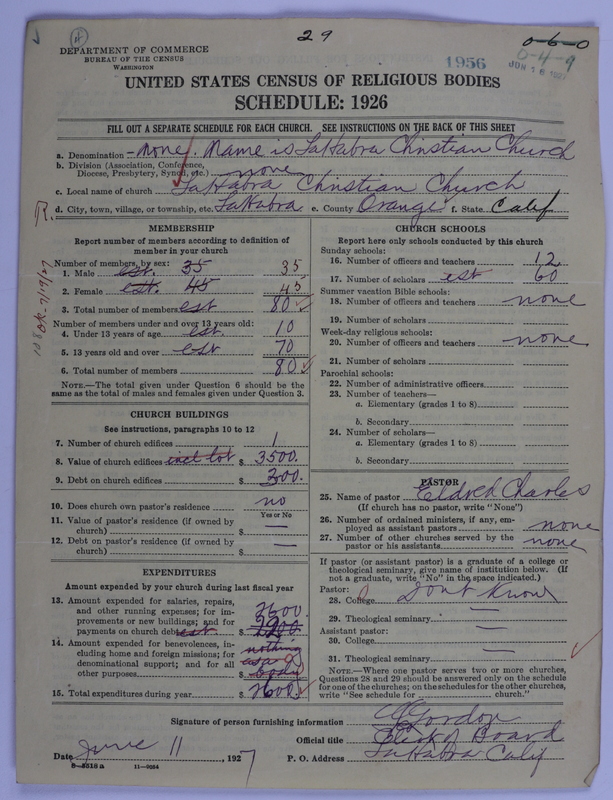 29
0-6-0
0-4-9
1956
DEPARTMENT OF COMMERCE
BUREAU OF THE CENSUS
WASHINGTON
UNITED STATES CENSUS OF RELIGIOUS BODIES
SCHEDULE: 1926
FILL OUT A SEPARATE SCHEDULE FOR EACH CHURCH. SEE INSTRUCTIONS ON THE BACK OF THIS SHEET
a. Denomination - none. Name is LaHabra Christian Church
b. Division (Association, Conference,
Diocese, Presbytery, Synod, etc.) none
c. Local name of church LaHabra Christian Church
d. City, town, village, or township, etc. LaHabra e. County Orange f. State Calif
MEMBERSHIP
Report number of members according to definition
of member in your church
Number of members, by sex:
1. Male est. 35 35
2. Female est. 45 45
3. Total number of members est 80
Number of members under and over 13 years old:
4. Under 13 years of age est. 10
5. 13 years old and over est 70
6. Total number of members 80
NOTE.—The total given under Question 6 should be
the same as the total of males and females given under Question 3.
CHURCH BUILDINGS
See instructions, paragraphs 10 to 12
7. Number of church edifices 1
8. Value of church edifices incl lot $ 3500.
9. Debt on church edifices $ 300.
10. Does church own pastor's residence no
Yes or No
11. Value of pastor's residence (if owned by
church) $ —
12. Debt on pastor's residence (if owned by
church) $ —
EXPENDITURES
Amount expended by your church during last fiscal year
13. Amount expended for salaries, repairs,
and other running expenses; for im-
provements or new buildings; and for
payments on church debt est $ 2600.
14. Amount expended for benevolences, in-
cluding home and foreign missions; for
denominational support; and for all
other purposes $ nothing
as a
body
15. Total expenditures during year $ 2600.
CHURCH SCHOOLS
Report here only schools conducted by this church
Sunday schools:
16. Number of officers and teachers 12
17. Number of scholars est 60
Summer vacation Bible schools:
18. Number of officers and teachers none
19. Number of scholars
Week-day religious schools:
20. Number of officers and teachers none
21. Number of scholars
Parochial schools:
22. Number of administrative officers
23. Number of teachers—
a. Elementary (grades 1 to 8)
b. Secondary
24. Number of scholars—
a. Elementary (grades 1 to 8)
b. Secondary
PASTOR
25. Name of pastor Eldred Charles
(If church has no pastor, write "None")
26. Number of ordained ministers, if any, em-
ployed as assistant pastors none
27. Number of other churches served by the
pastor or his assistants none
If pastor (or assistant pastor) is a graduate of a college or
theological seminary, give name of institution below. (If
not a graduate, write "No" in the space indicated.)
Pastor:
28. College Dont Know
29. Theological seminary —
Assistant pastor:
30. College —
31. Theological seminary
NOTE.—Where one pastor serves two or more churches,
Questions 28 and 29 should be answered only on the schedule
for one of the churches; on the schedules for the other churches,
write "See schedule for church."
Signature of person furnishing information Gordon
Official title Board
Date June 11, 1927 P. O. Address LaHabra Calif
8-5518 a 11-9024